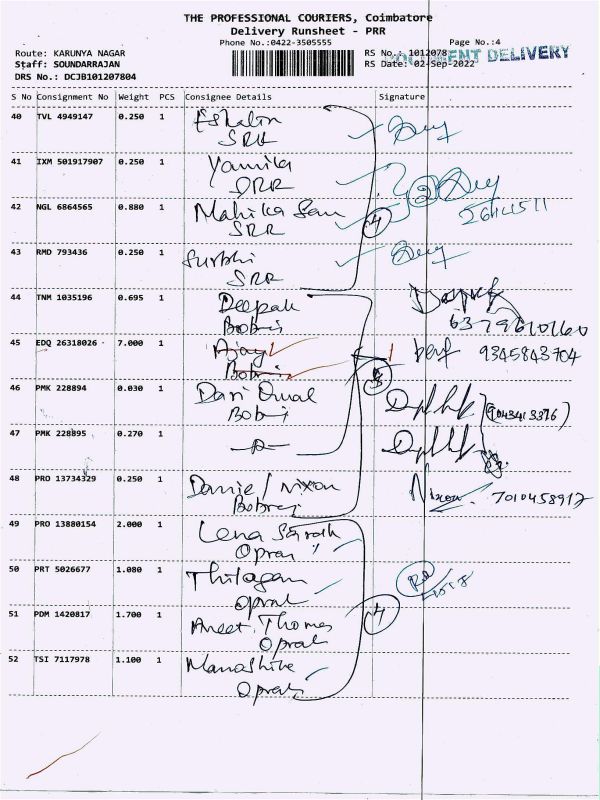 THE PROFESSIONAL COURIERS, Coimbatore
Delivery Runsheet - PRR
Phone No.:0422-3505555
Page No.:4
Route: KARUNYA NAGAR
RS No.: 1012078
Staff: SOUNDARRAJAN
RS Date: 02-Sep-2022
DOCUMENT DELIVERY
DRS No.: DCJB101207804
S No Consignment No Weight PCS Consignee Details Signature
40 TVL 4949147 0.250 1
SRR
41 IXM 501917907 0.250 1 Yamika
SRR
2
26114511
42 NGL 6864565 0.880 1 Mahika
SRR
4
43 RMD 793436 0.250 1 Surbhi
SRR
44 TNM 1035196 0.695 1 Deepak
Bobrij
6379610160
45 EDQ 26318026 7.000 1 Ajay
Bobrij
9345843704
46 PMK 228894 0.030 1
Bobrij
9043413376
47 PMK 228895 0.270 1
48 PRO 13734329 0.250 1 Daniel Nixon
Nixon 7010458917
49 PRO 13880154 2.000 1 Lena
Opral
50 PRT 5026677 1.080 1 Thilagan
Opral
51 PDM 1420817 1.700 1 Aneet Thomas
Opral
4
52 TSI 7117978 1.100 1
Opral